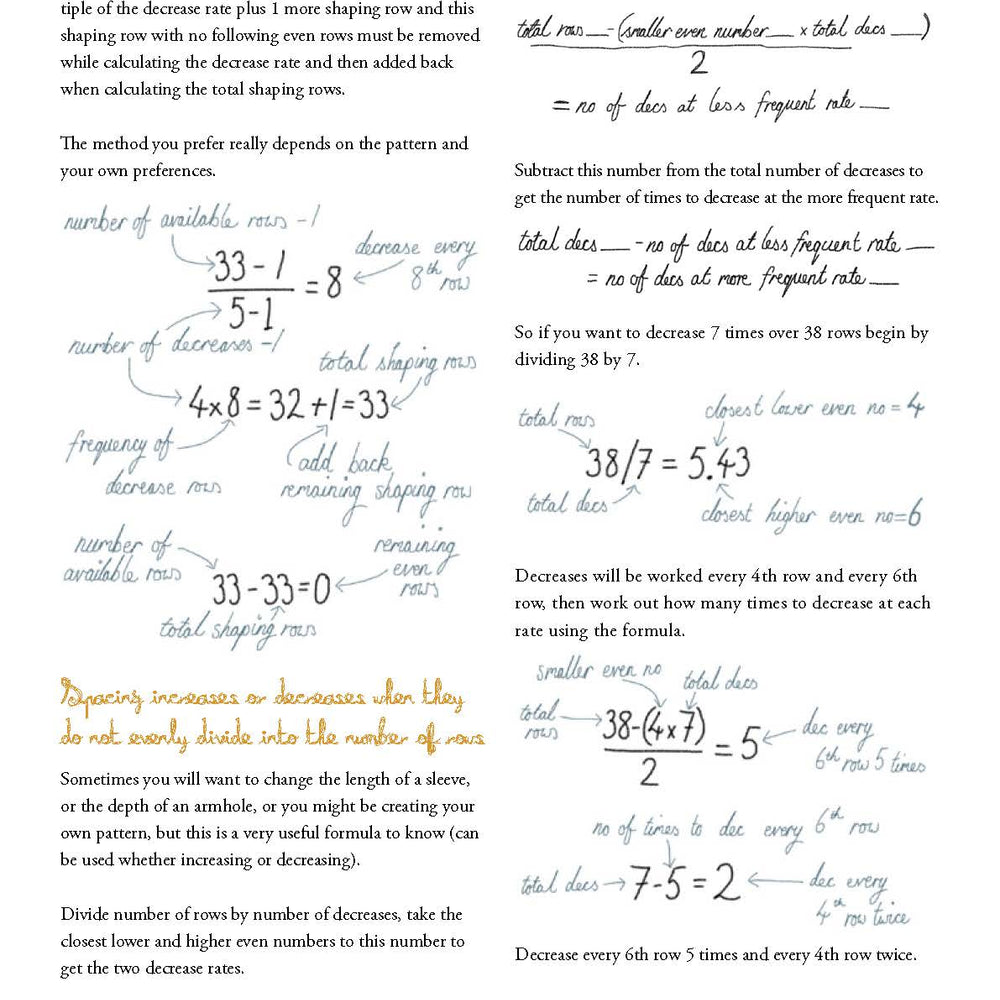 tiple of the decrease rate plus 1 more shaping row and this
shaping row with no following even rows must be removed
while calculating the decrease rate and then added back
when calculating the total shaping rows.
The method you prefer really depends on the pattern and
your own preferences.
number of available rows -1
33 - 1
5-1
= 8
decrease every
8th row
number of decreases -1
total shaping rows
4x8 = 32 +1=33
frequency of
decrease rows
add back
remaining shaping row
number of
available rows
remaining
even
rows
33-33=0
total shaping rows
Spacing increases or decreases when they
do not evenly divide into the number of rows
Sometimes you will want to change the length of a sleeve,
or the depth of an armhole, or you might be creating your
own pattern, but this is a very useful formula to know (can
be used whether increasing or decreasing).
Divide number of rows by number of decreases, take the
closest lower and higher even numbers to this number to
get the two decrease rates.
total rows __ - (smaller even number __ x total decs __ )
2
= no of decs at less frequent rate __
Subtract this number from the total number of decreases to
get the number of times to decrease at the more frequent rate.
total decs __ - no of decs at less frequent rate __
= no of decs at more frequent rate __
So if you want to decrease 7 times over 38 rows begin by
dividing 38 by 7.
total rows
closest lower even no = 4
38/7 = 5.43
total decs
closest higher even no=6
Decreases will be worked every 4th row and every 6th
row, then work out how many times to decrease at each
rate using the formula.
smaller even no
total decs
total
rows
38-(4x7)
2
= 5
dec every
6th row 5 times
no of times to dec every 6th row
total decs
7-5 = 2
dec every
4th row twice
Decrease every 6th row 5 times and every 4th row twice.